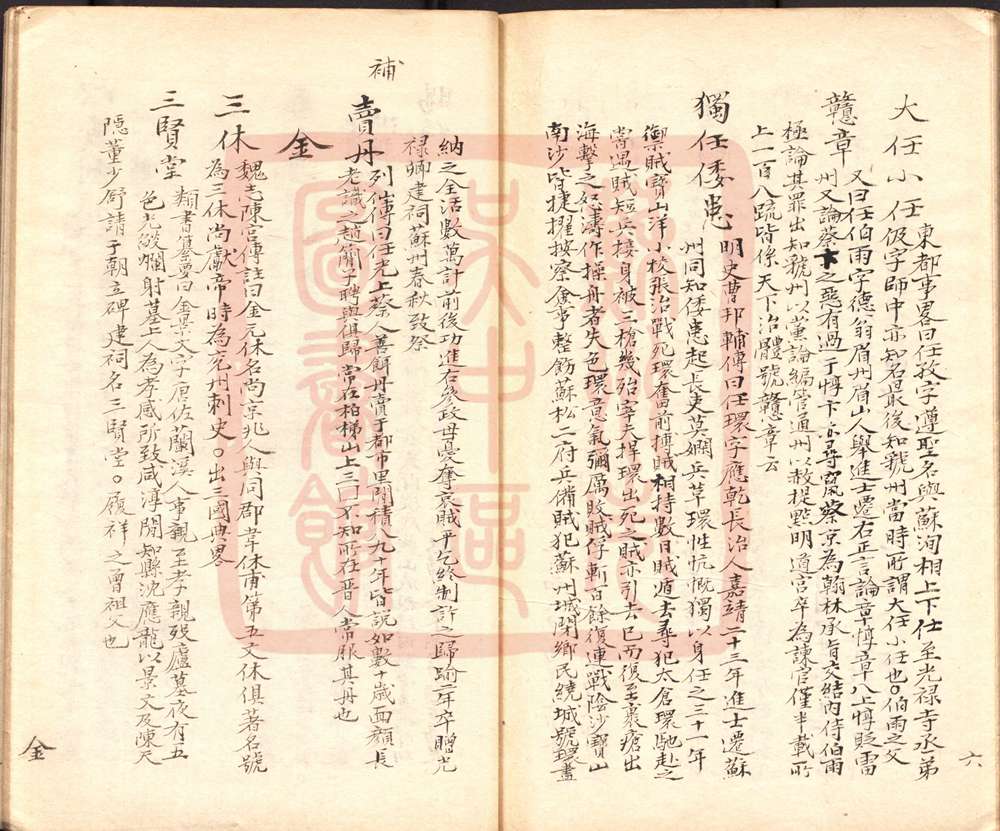 六
大任小任 東都事畧曰任孜字遵聖名與蘇洵相上下仕至光禄寺丞弟
伋字師中亦知名最後知虢州當時所謂大任小任也○伯雨之父
戇章 又曰任伯雨字德翁眉州眉山人舉進士遷右正言論章惇章八上惇貶雷
州又論蔡卞之惡有過于惇卞亦尋竄蔡京為翰林承旨交結內侍伯雨
極論其罪出知虢州以黨論編管通州以赦提點明道宮卒為諫官僅半載所
上一百八疏皆係天下治體號戇章云
獨任倭患 明史曹邦輔傳曰任環字應乾長治人嘉靖二十三年進士遷蘇
州同知倭患起長吏莫嫻兵革環性忼慨獨以身任之三十一年
禦賊寶山洋小校張治戰死環奮前搏賊相持數日賊遁去尋犯太倉環馳赴之
嘗遇賊短兵接身被三槍幾殆宰夫捍環出死之賊亦引去已而復至裹瘡出
海擊之怒濤作操舟者失色環意氣彌厲敗賊俘斬百餘復連戰陰沙寶山
南沙皆捷擢按察僉事整飭蘇松二府兵備賊犯蘇州城閉鄉民繞城號環盡
納之全活數萬計前後功進右參政母憂奪哀賊平乞終制許之歸踰二年卒贈光
禄卿建祠蘇州春秋致祭
補
賣丹 列僊傳曰任光上蔡人善餌丹賣于都市里閒積八九十年皆說如數十歲面顏長
老識之趙簡子聘與俱歸常在柏梯山上三不知所在晉人常服其丹也
金
三休 魏志陳宮傳註曰金元休名尚京兆人與同郡韋休甫第五文休俱著名號
為三休尚獻帝時為兗州刺史○出三國典畧
三賢堂 類書纂要曰金景文字唐佐蘭溪人事親至孝親歿廬墓夜有五
色光燄爛射墓上人為孝感所致咸淳閒知縣沈應龍以景文及陳天
隱董少舒請于朝立碑建祠名三賢堂○履祥之曾祖父也
金